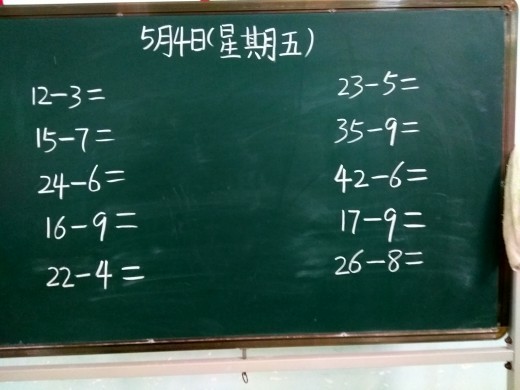 5月4日(星期五)
12-3=
15-7=
24-6=
16-9=
22-4=
23-5=
35-9=
42-6=
17-9=
26-8=